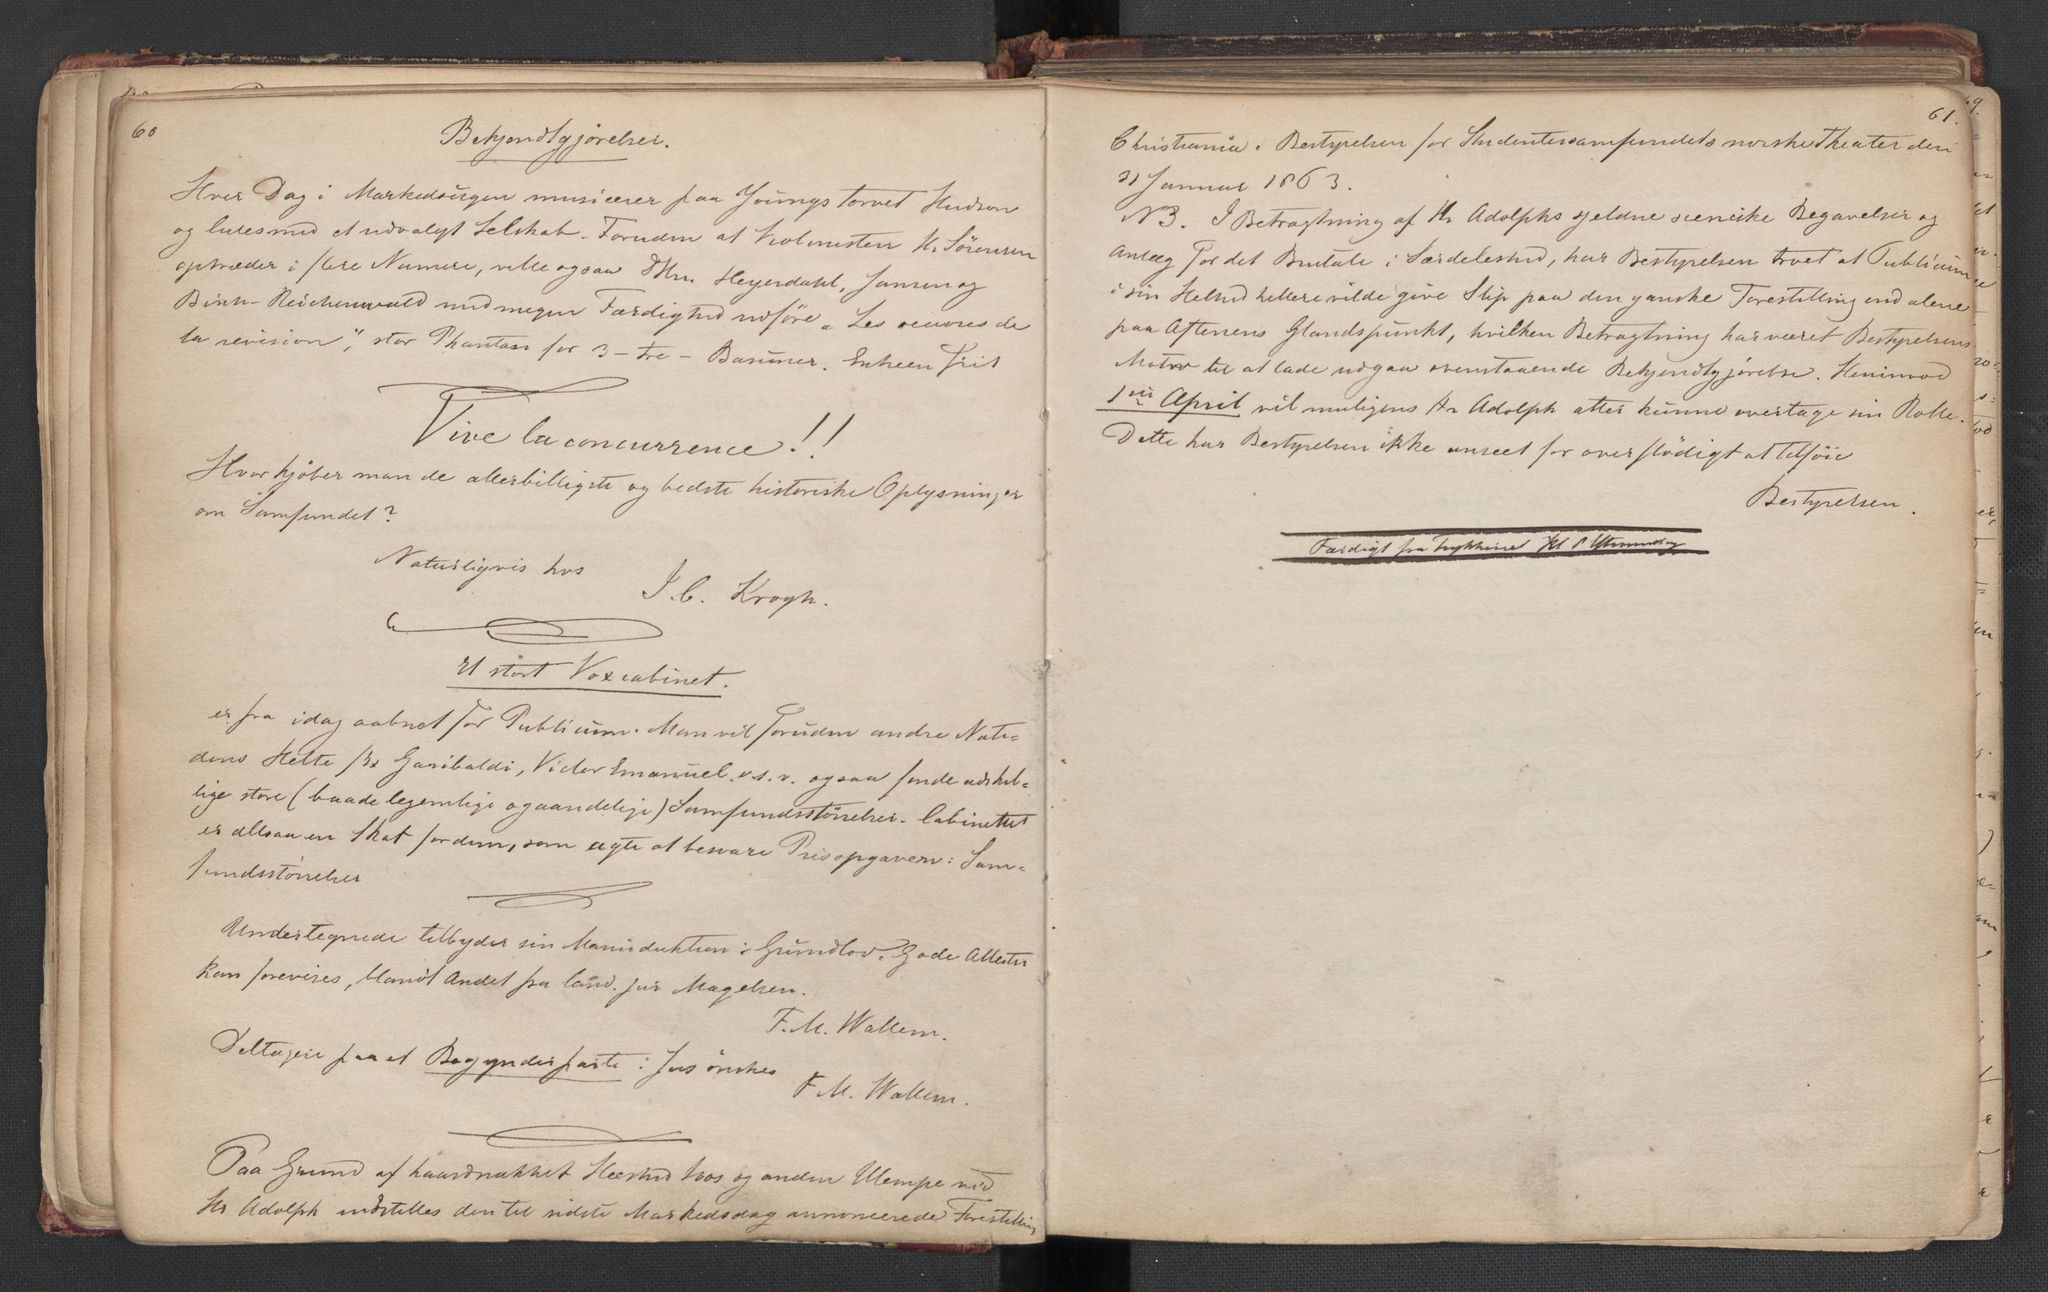 60
Bekjendtgjørelser.
Hver Dag i Markedsugen musicerer paa Youngstorvet Hudson
og med et udvalgt Selskab. Foruden at Violinisten Hr Sörensen
optræder i flere Numere, ville ogsaa Hrr. Heyerdahl, Jansen og
Birch-Reichenwald med megen Færdighed udföre "Les
la revision", stor Phantasi for 3 - tre - Basuner. Entreen frit
Vive la concurrence!!
Hvor kjöber man de allerbilligste og bedste historiske Oplysninger
om Samfundet?
Naturligvis hos
J. C. Krogh.
Et stort Voxcabinet.
er fra idag aabnet for Publicum. Man vil foruden andre Nuti-
dens Helte f Ex Garibaldi, Victor Emanuel o. s. v. ogsaa finde adskil-
lige store (baade legemlige og aandelige) Samfundsstörrelser. Cabinettet
er altsaa en Skat for dem, som agte at besvare Prisopgaven: Sam-
fundsstörrelser
Undertegnede tilbyder sin Manuduktion i Grundlov. Gode Attester
kan forevises, blandt Andet fra Cand. jur Magelsen.
F. M. Wallem.
Deltagere paa et Begynderparti i Jus önskes
F. M. Wallem.
Paa Grund af haardnakket Hæshed hos og anden Ulempe ved
Hr Adolph indstilles den til sidste Markedsdag annoncerede Forestilling
61.
Christiania. Bestyrelsen for Studentersamfundets norske Theater den
31 Januar 1863.
NB. I Betragtning af Hr Adolphs sjeldne sceniske Begavelser og
Anlæg for det Brutale i Særdeleshed, har Bestyrelsen troet at Publicum
i sin Helhed hellere vilde give Slip paa den ganske Forestilling end alene
paa Aftenens Glandspunkt, hvilken Betragtning har været Bestyrelsens
Motiv til at lade udgaa ovenstaaende Bekjendtgjörelse. Henimod
1ste April vil muligens Hr Adolph atter kunne overtage sin Rolle.
Dette har Bestyrelsen ikke anseet for overflödigt at tilföie
Bestyrelsen.
Færdigt fra Trykkeriet Kl 8 Eftermiddag